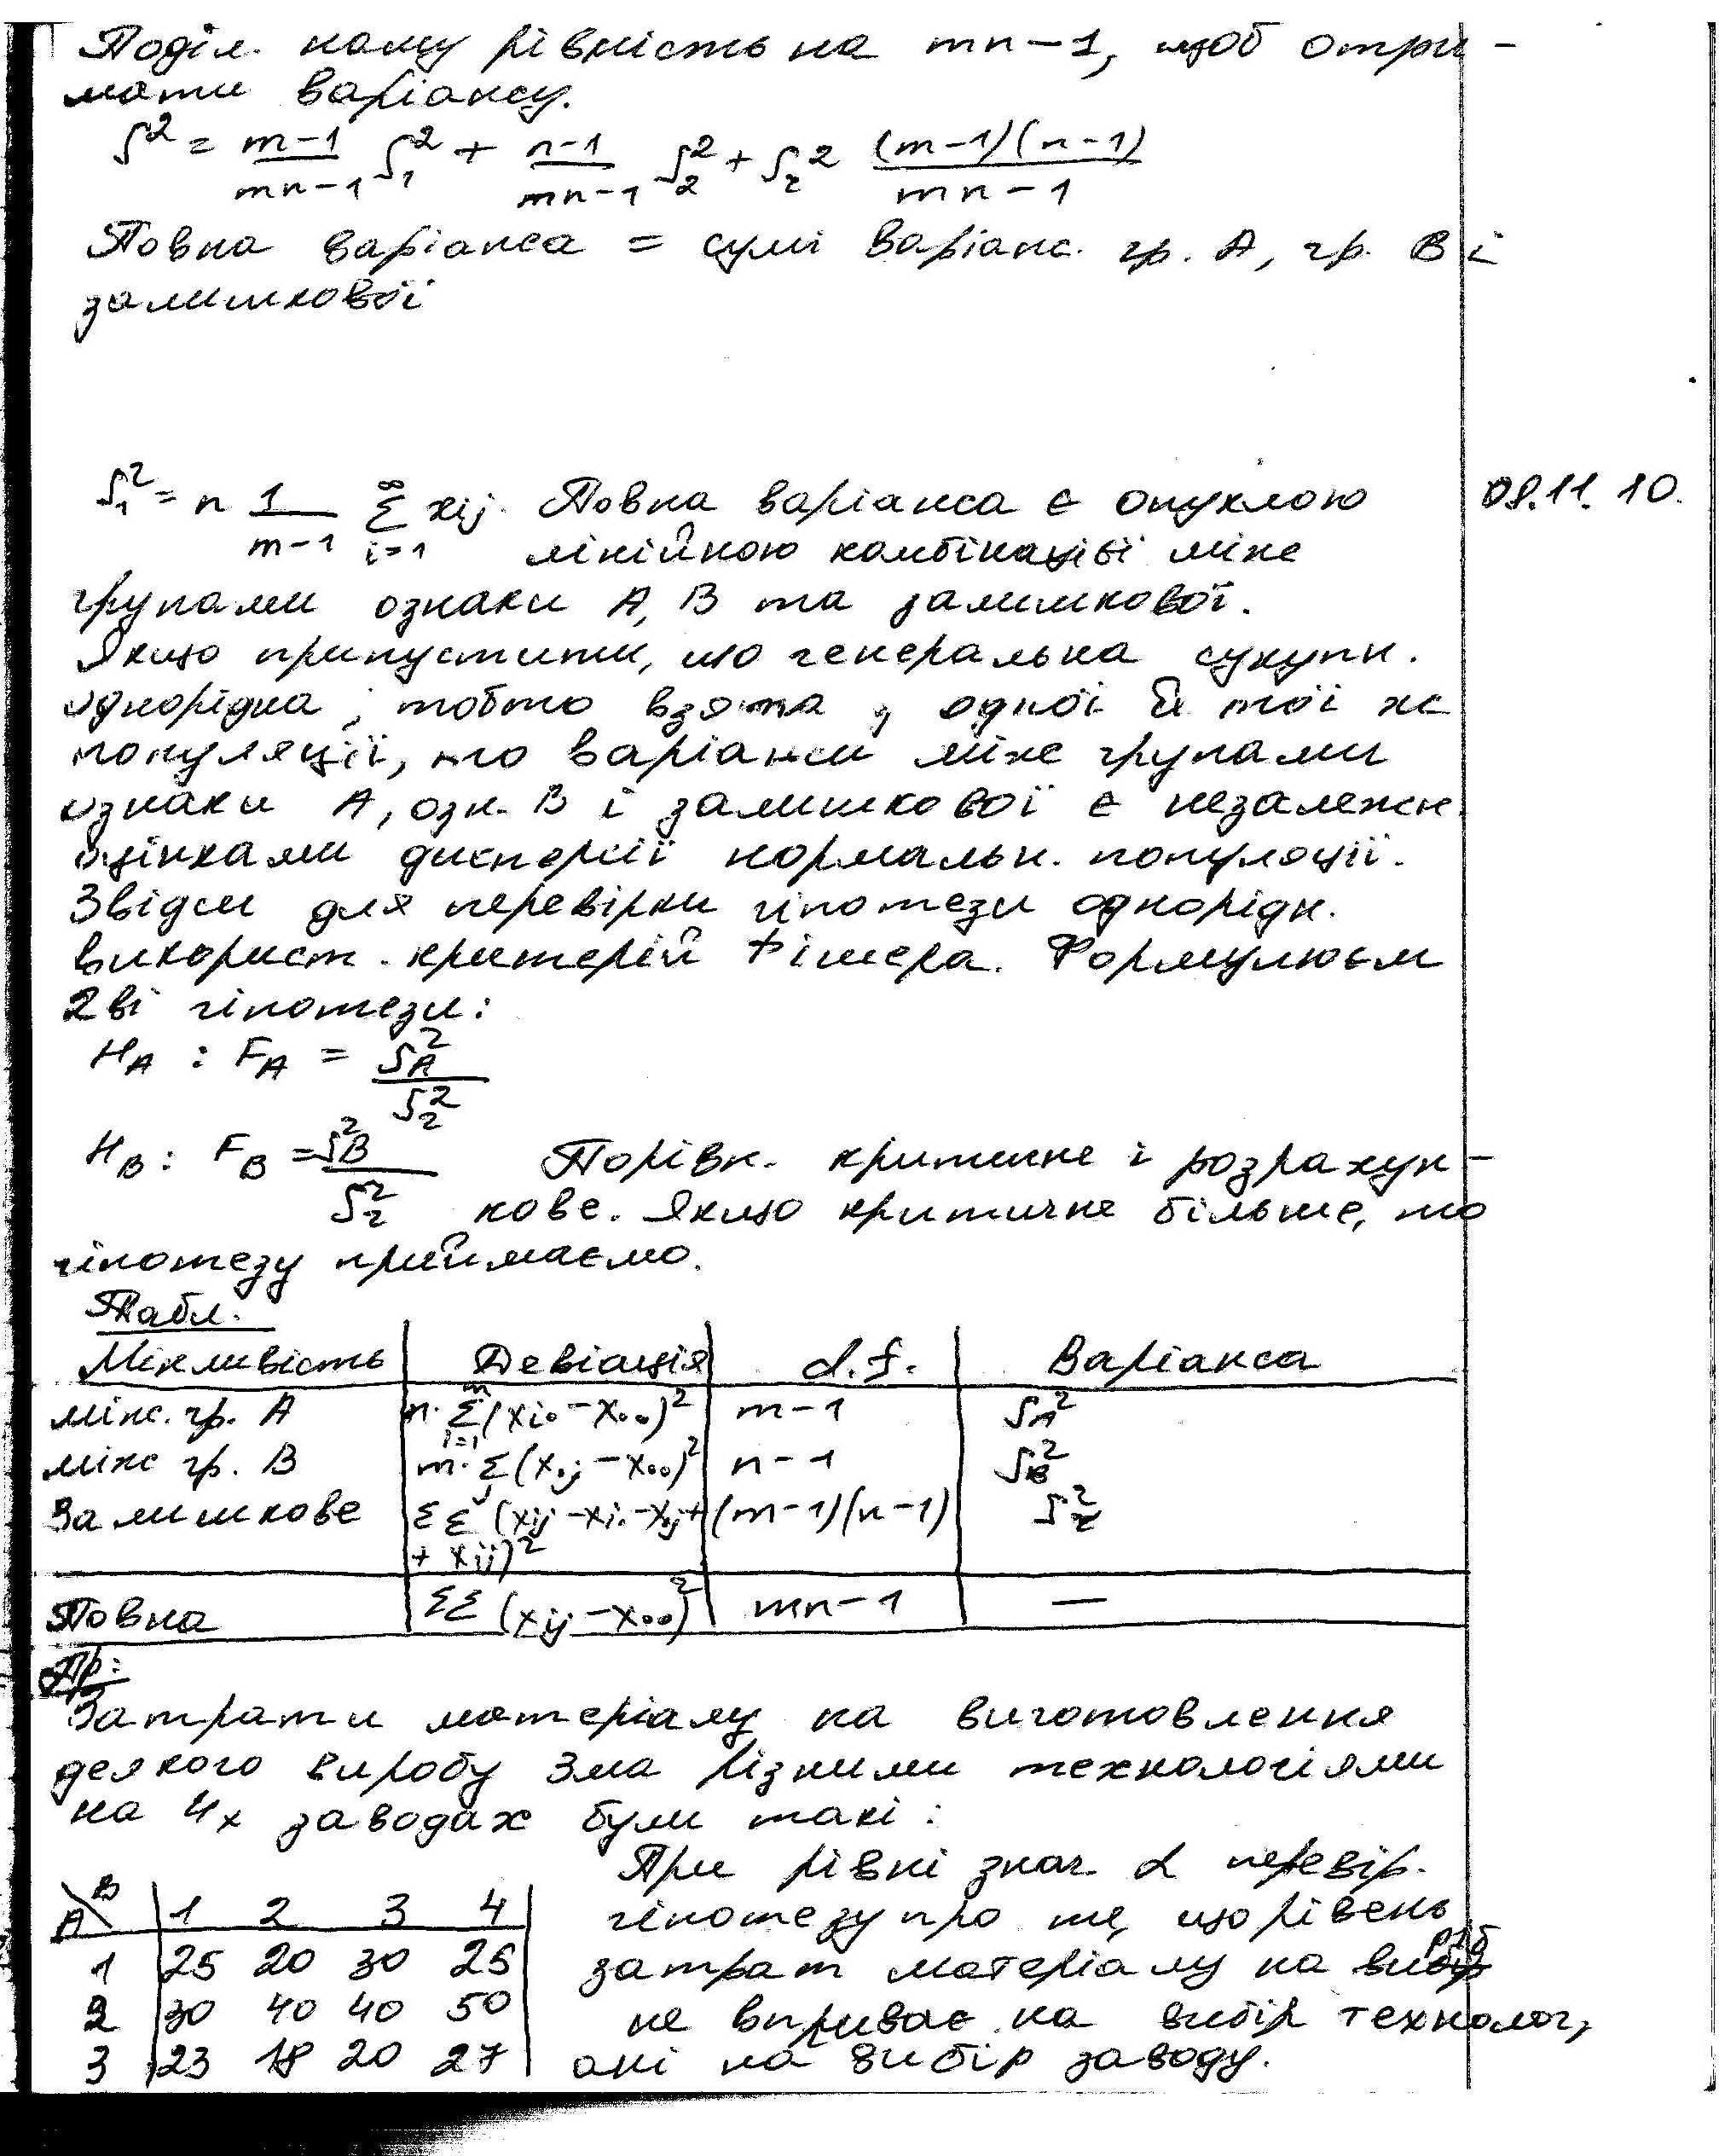 Поділ. нашу рівність на mn-1, щоб отри-
мати варіансу.
S² = (m-1)/(mn-1) S₁² + (n-1)/(mn-1) S₂² + S_z² ((m-1)(n-1))/(mn-1)
Повна варіанса = сумі варіанс. гр. A, гр. B і
залишкової
S₁² = n 1/(m-1) ∞Σi=1 xij. Повна варіанса є опуклою
08.11.10.
лінійною комбінації між
групами ознаки A, B та залишкової.
Якщо припустити, що генеральна сукупн.
однорідна, тобто взята з одної й тої ж
популяції, то варіанси між групами
ознаки A, озн. B і залишкової є незалежн.
оцінками дисперсії нормальн. популяції.
Звідси для перевірки гіпотези однорідн.
використ. критерій Фішера. Формулюєм
2ві гіпотези:
H_A : F_A = S_A²/S_z²
H_B : F_B = S_B²/S_z² Порівн. критичне і розрахун-
кове. Якщо критичне більше, то
гіпотезу приймаємо.
Табл.
Мінливість Девіація d.f. Варіанса
між. гр. A n·mΣi=1(xi∘-x∘∘)² m-1 S_A²
між гр. B m·Σj(x∘j-x∘∘)² n-1 S_B²
Залишкове ΣΣ(xij-xi.-x.j+ (m-1)(n-1) S_z²
+xij)²
Повна ΣΣ(xij-x∘∘)² mn-1 —
Пр:
Затрати матеріалу на виготовлення
деякого виробу 3ма різними технологіями
на 4х заводах були такі:
При рівні знач. α перевір.
A\B 1 2 3 4 гіпотезу про те, що рівень
1 25 20 30 25 затрат матеріалу на виріб
2 30 40 40 50 не впливає на вибір технолог,
3 23 18 20 27 ані на вибір заводу.